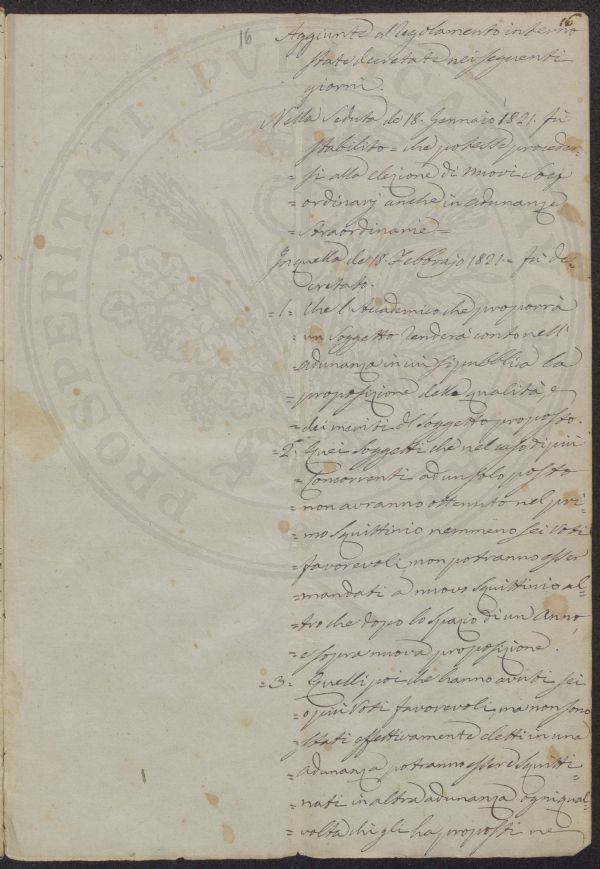 16
16
Aggiunte al Regolamento interno
state decretate nei seguenti
giorni.
Nella Seduta de 18. Gennaio 1821. fù
stabilito = che potesse proceder-
= si alla elezione di nuovi Socj
= ordinarj anche in adunanze
= straordinarie =
In quella de 18. Febbrajo 1821 = fù de-
cretato.
= 1 = Che l'Accademico che proporrà
= un Soggetto renderà conto nell'
= adunanza in cui si pubblica la
= proposizione delle qualità, e
= dei meriti del Soggetto proposto.
= 2. Quei Soggetti che nel caso di più
= Concorrenti ad un solo posto
= non avranno ottenuto nel pri-
= mo Squittinio nemmeno sei Voti
= favorevoli, non potranno esser
= mandati a nuovo Squittinio al-
= tro che dopo lo spazio di un Anno,
= e sopra nuova proposizione.
= 3 = Quelli poi che hanno avuti sei
= o più Voti favorevoli, ma non sono
= stati effettivamente eletti in una
= adunanza potranno essere Squitti-
= nati in altra adunanza ogni qual-
= volta chi gli ha proposti ne
PROSPERITATI PUBLICAE